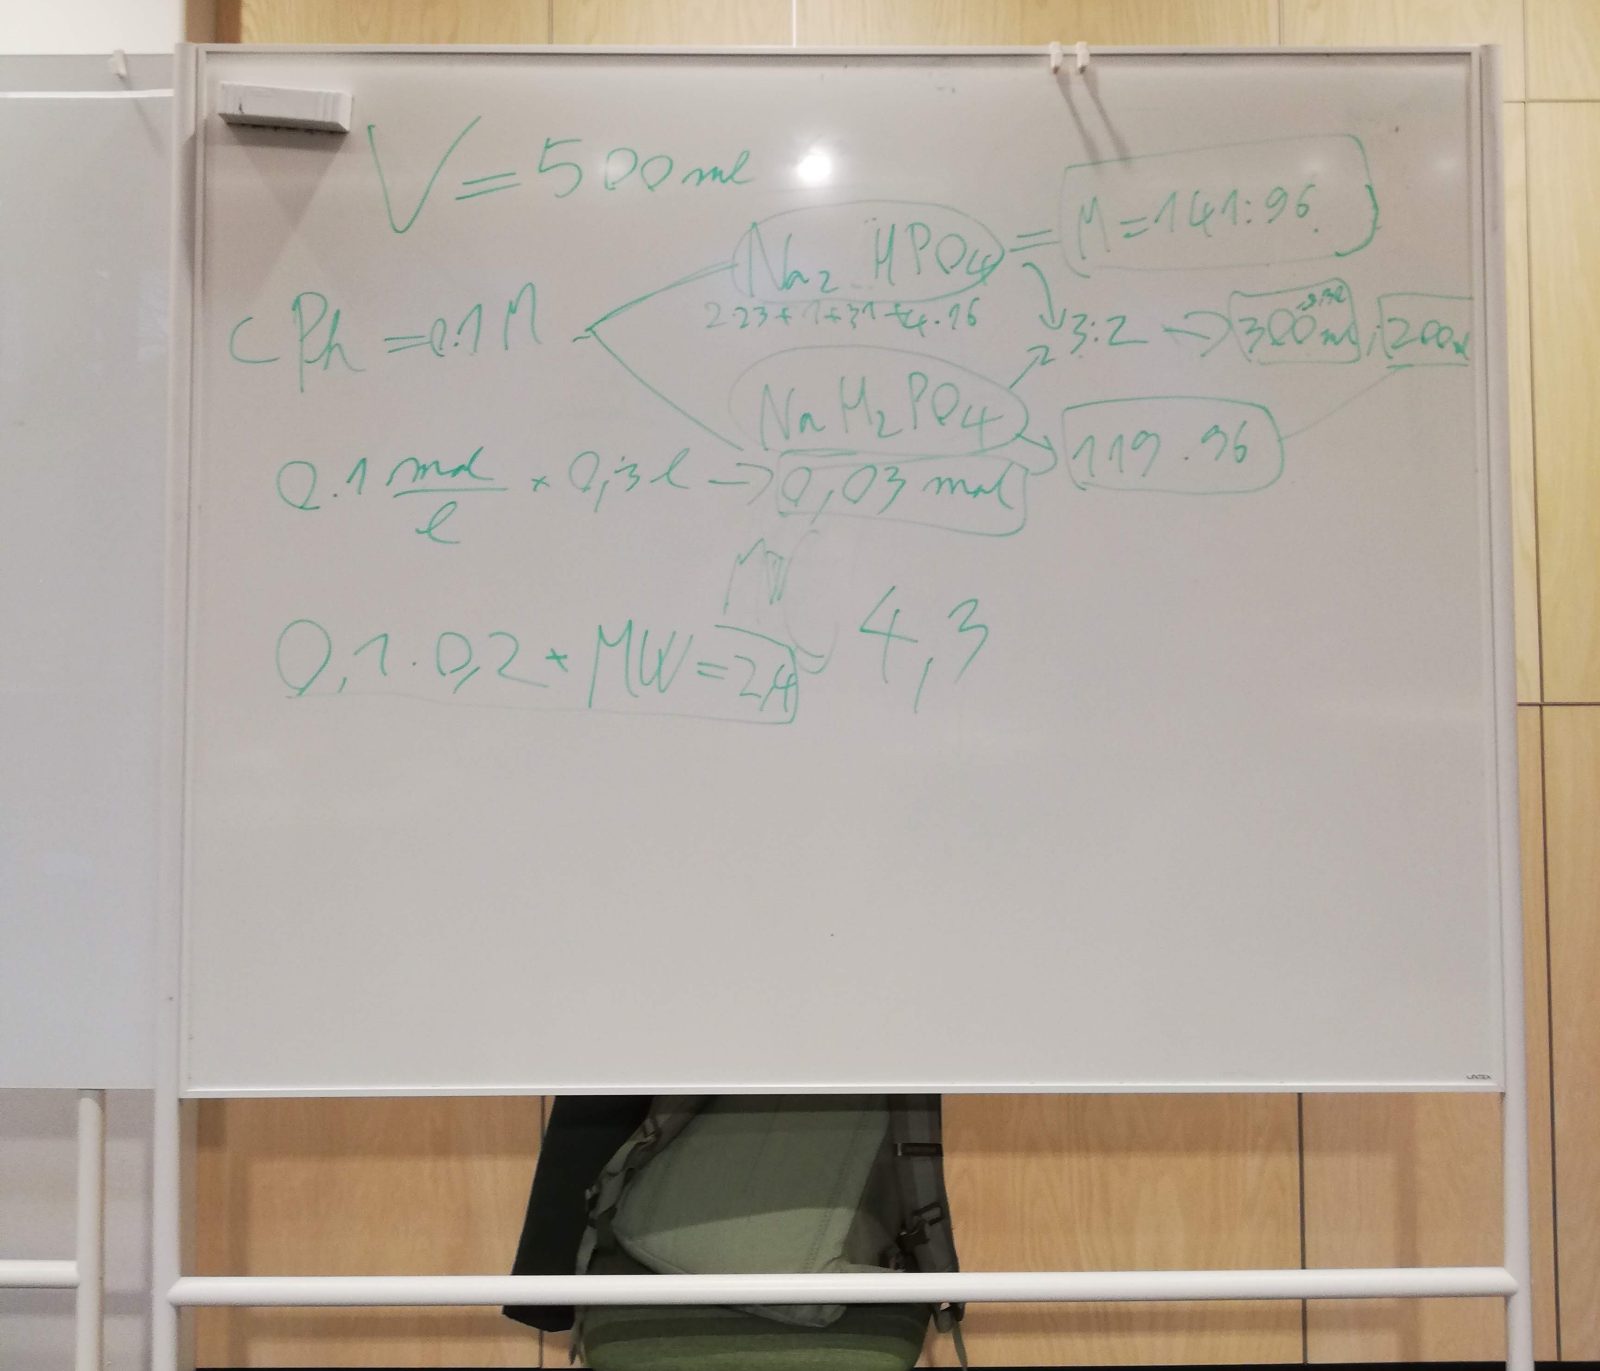 V = 500 ml
Na₂ HPO₄ = M = 141.96
2·23 + 1 + 31 + 4·16
c Ph = 0.1 M
3:2 → 300 ml ; 200
NaH₂PO₄
119.96
0.1 mol/l × 0,3 l → 0,03 mol
MW
0,1 · 0,2 * MW = 2,4 4,3